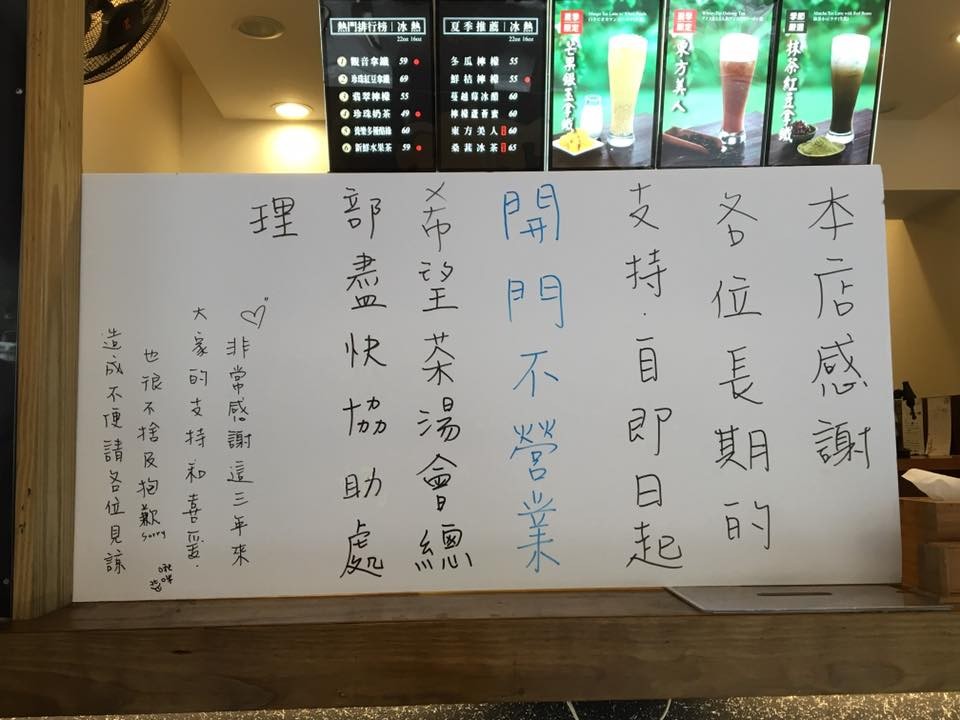 熱門排行榜 | 冰 熱
22oz 16oz
1 觀音拿鐵 59
2 珍珠紅豆拿鐵 69
3 翡翠檸檬 55
4 珍珠奶茶 49
6 新鮮水果茶 59
夏季推薦 | 冰 熱
22oz 16oz
冬瓜檸檬 55
鮮桔檸檬 55
蔓越莓冰醋 60
檸檬蘆薈蜜 60
東方美人 60
桑葚冰茶 65
夏季限定
芒果銀玉拿鐵
夏季限定
東方美人
季節限定
抹茶紅豆拿鐵
本店感謝
各位長期的
支持.自即日起
開門不營業
希望茶湯會總
部盡快協助處
理
非常感謝這三年來
大家的支持和喜愛.
也很不捨及抱歉 sorry
造成不便請各位見諒